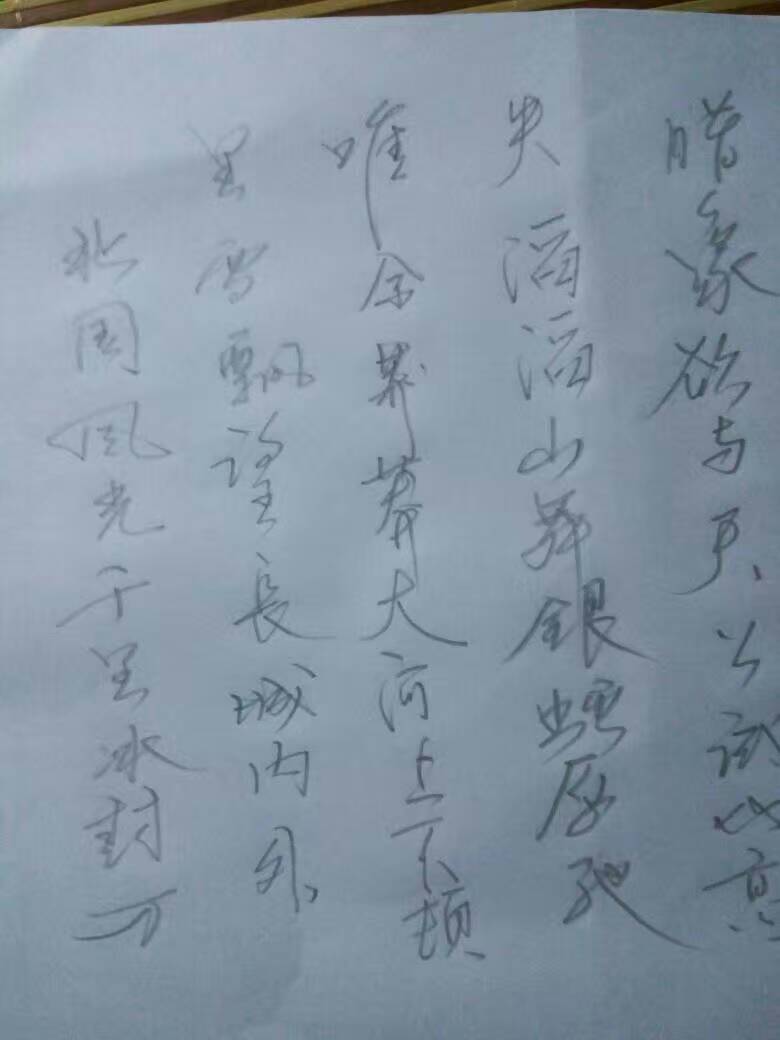 北国风光千里冰封万
里雪飘望長城内外
唯余莽莽大河上下顿
失滔滔山舞銀蛇原驰
腊象欲与天公试比高